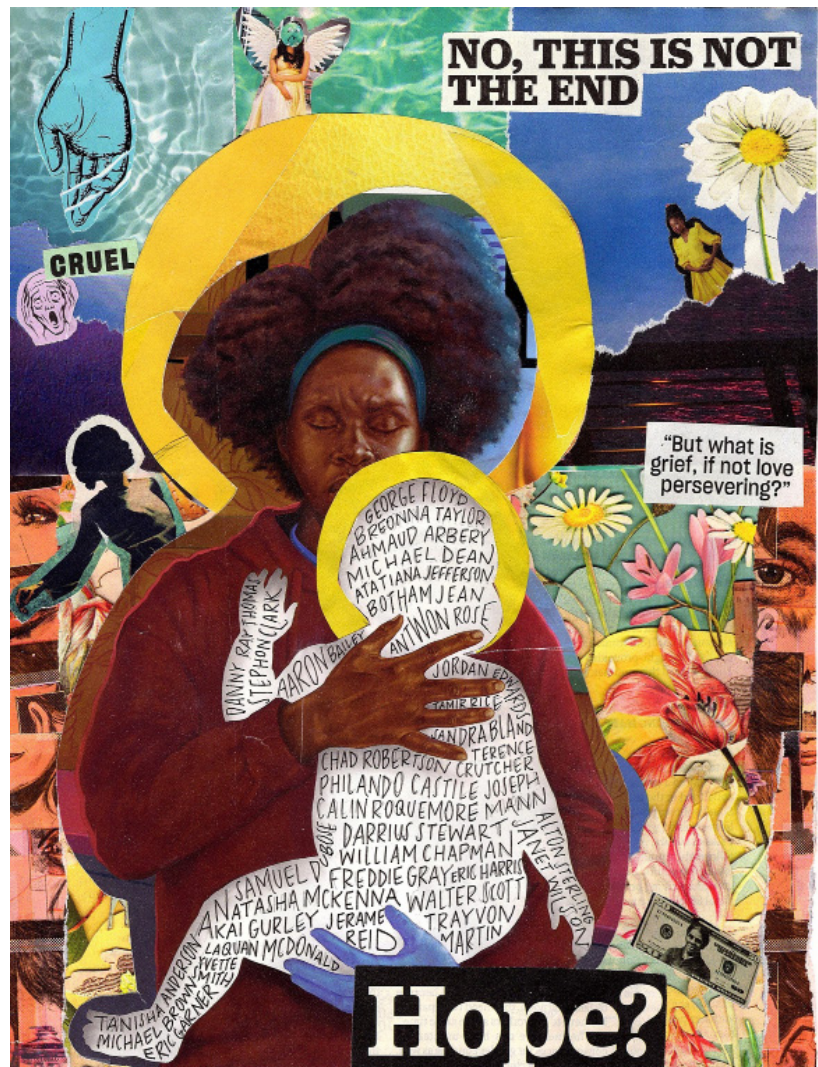 NO, THIS IS NOT
THE END
CRUEL
"But what is
grief, if not love
persevering?"
GEORGE FLOYD
BREONNA TAYLOR
AHMAUD ARBERY
MICHAEL DEAN
ATATIANA JEFFERSON
BOTHAM JEAN
ANTWON ROSE
DANNY RAY THOMAS
STEPHON CLARK
AARON BAILEY
JORDAN EDWARDS
TAMIR RICE
SANDRA BLAND
CHAD ROBERTSON
TERENCE
CRUTCHER
PHILANDO CASTILE
JOSEPH
MANN
CALIN ROQUEMORE
DARRIUS STEWART
ALTON STERLING
JANET WILSON
WILLIAM CHAPMAN
SAMUEL DUBOSE
FREDDIE GRAY
ERIC HARRIS
NATASHA MCKENNA
WALTER SCOTT
AKAI GURLEY
JERAME
REID
TRAYVON
MARTIN
LAQUAN MCDONALD
YVETTE
SMITH
TANISHA ANDERSON
MICHAEL BROWN
ERIC GARNER
Hope?